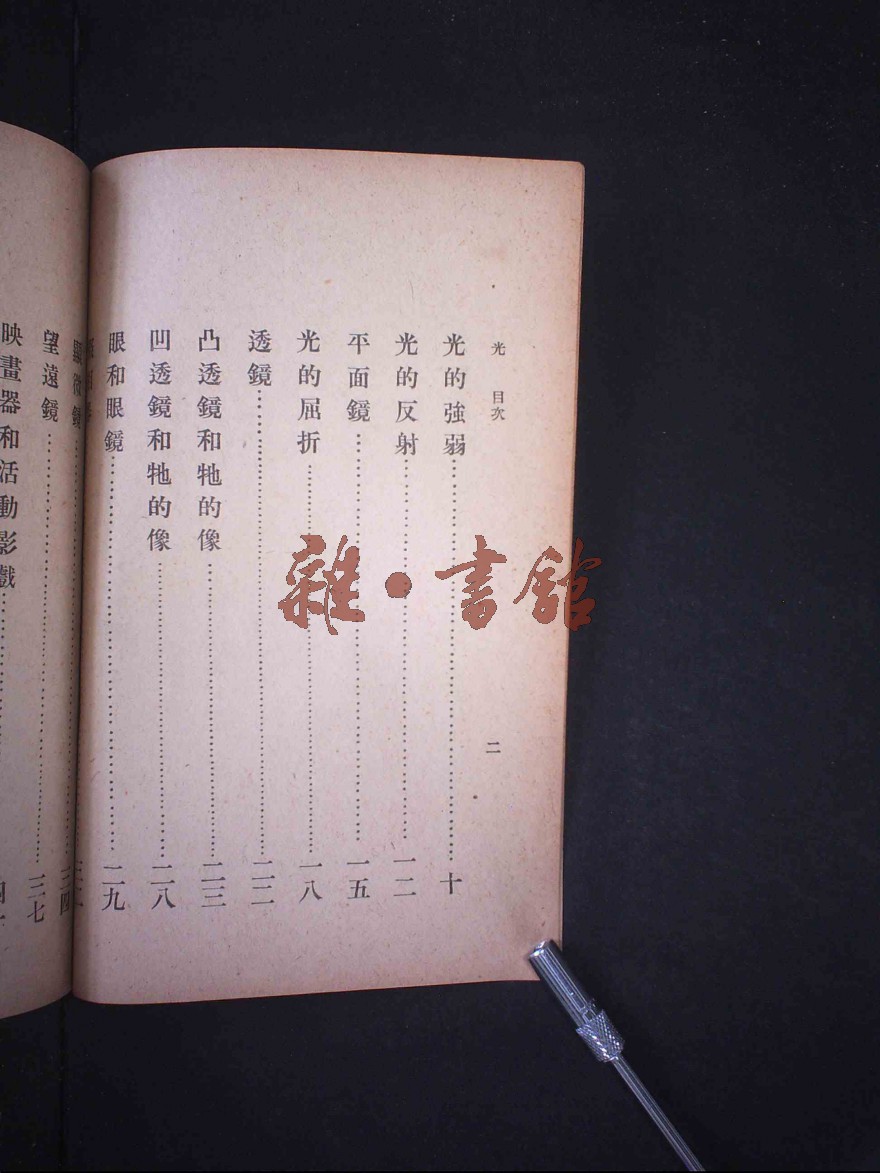 光 目次
二
光的強弱……十
光的反射……一二
平面鏡……一五
光的屈折……一八
透鏡……二二
凸透鏡和牠的像……二三
凹透鏡和牠的像……二八
眼和眼鏡……二九
顯微鏡……三四
望遠鏡……三七
映畫器和活動影戲……
雜·書館